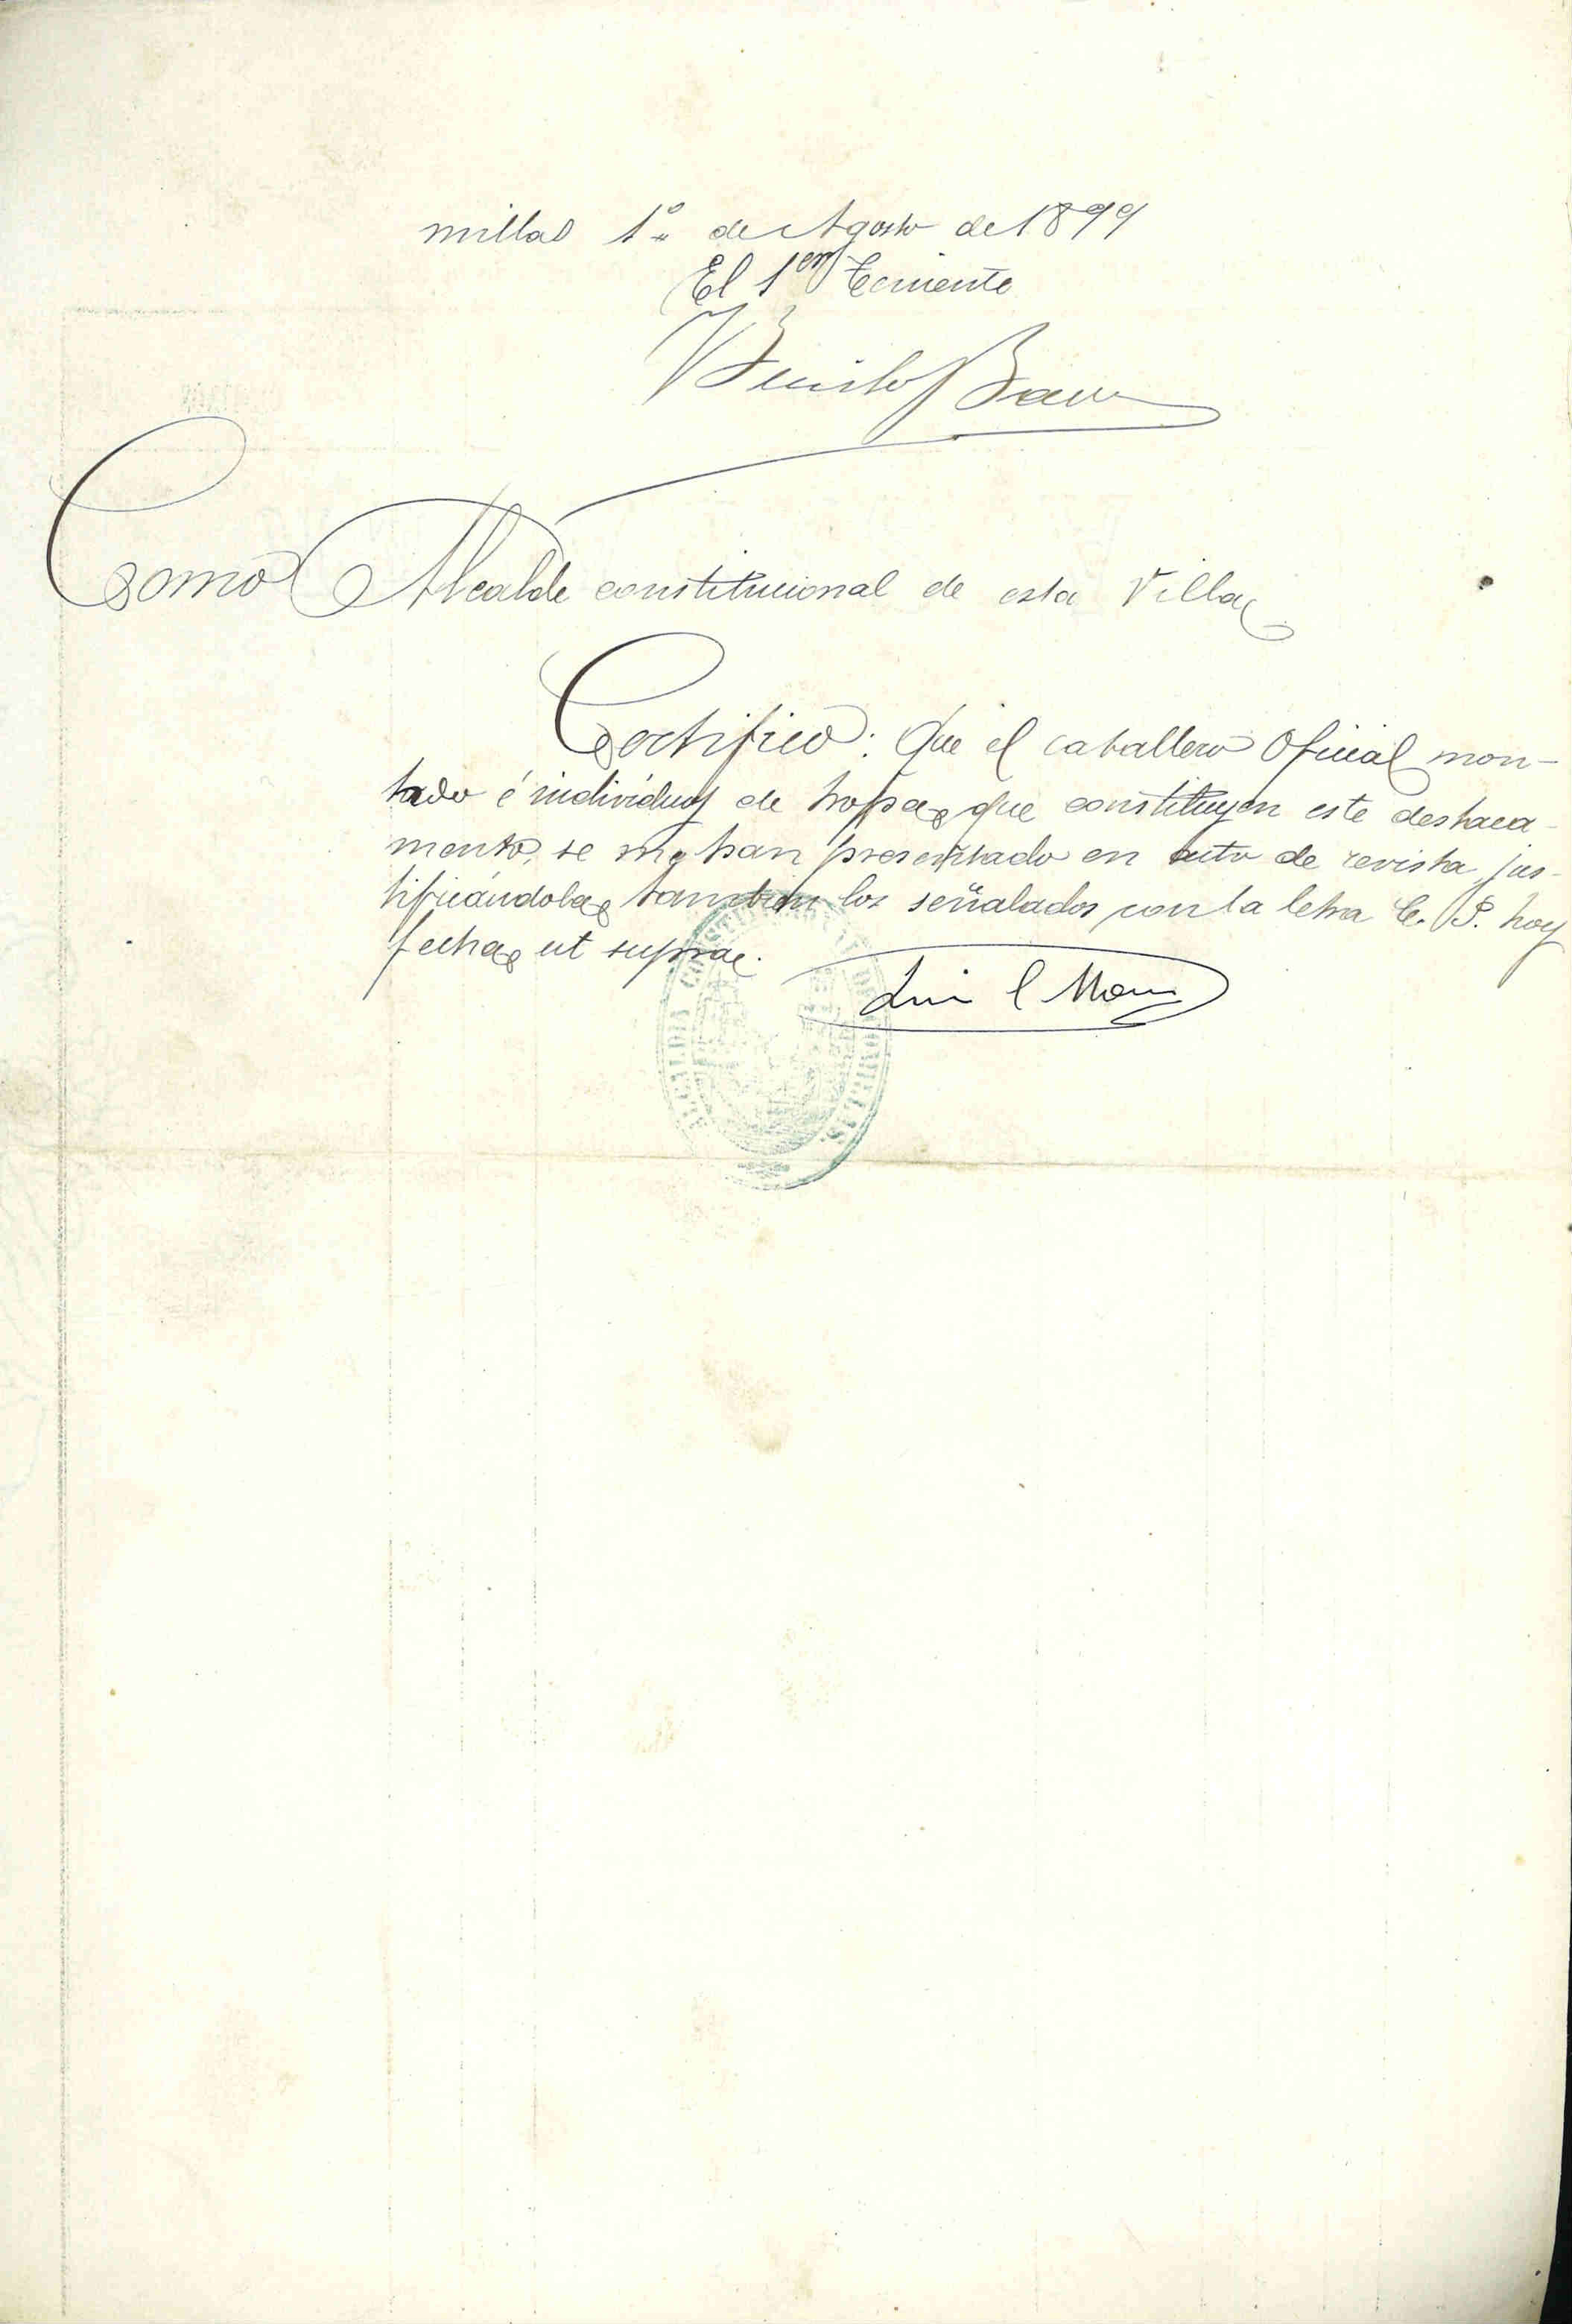 millas 1º de Agosto de 1899
El 1er Teniente
Benito
Como Alcalde constitucional de esta Villa
Certifico: Que el caballero Oficial mon-
tado é individuos de tropa que constituyen este destaca-
mento, se me han presentado en acto de revista jus-
tificándola también los señalados con la letra C. P. hoy
fecha ut supra.
Luis
ALCALDIA CONSTITUCIONAL DE